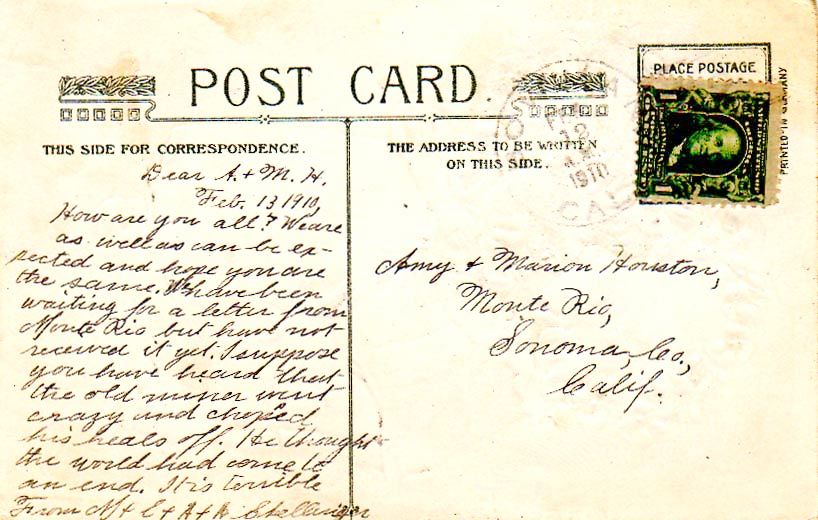 POST CARD.
PLACE POSTAGE
PRINTED IN GERMANY
THIS SIDE FOR CORRESPONDENCE.
THE ADDRESS TO BE WRITTEN
ON THIS SIDE.
12
1910
CAL
1 1
Dear A. + M. H.
Feb. 13 1910,
How are you all? We are
as well as can be ex-
pected and hope you are
the same. We have been
waiting for a letter from
Monte Rio but have not
received it yet. I suppose
you have heard that
the old miner went
crazy and choped
his heals off. He thought
the world had come to
an end. It is terrible
From M + C + A +
Amy & Marion Houston,
Monte Rio,
Sonoma, Co.,
Calif.